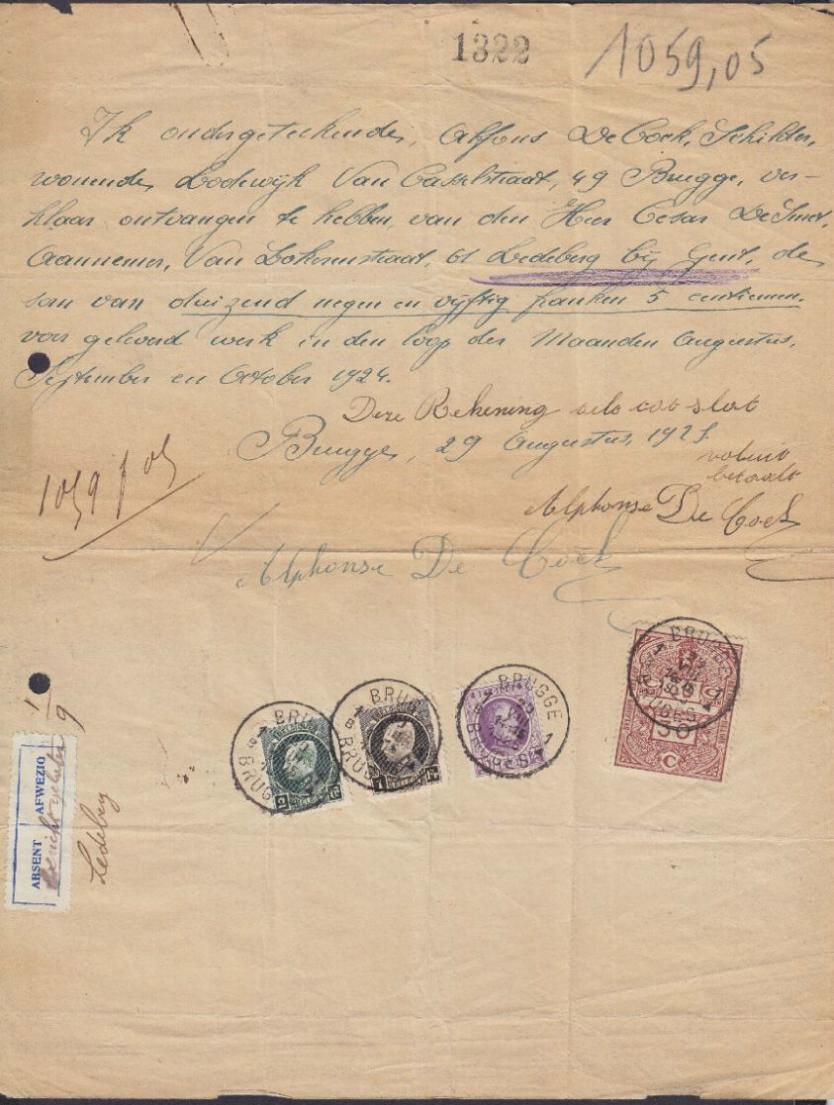 1322
1059,05
Ik ondergeteekende, Alfons De Cock, Schilder,
wonende, Lodewijk Van Casselstraat, 49 Brugge, ver-
klaar ontvangen te hebben, van den Heer Cesar De Smet,
Aannemer, Van Lokerenstraat, 61 Ledeberg bij Gent, de
som van duizend negen en vijftig franken 5 centiemen.
voor geleverd werk in den loop der Maanden Augustus,
September en October 1924.
Deze Rekening slot
Brugge, 29 Augustus, 1925.
betaalt
1059 f 05
Alphonse De Cock
Alphonse De Cock
BRUGGE
BRUGES
1
BRUGGE
BRUGES
1
BRUGGE 1
BRUGES
BRUGGE 1
BRUGES
30
9
ABSENT AFWEZIG
Ledeberg